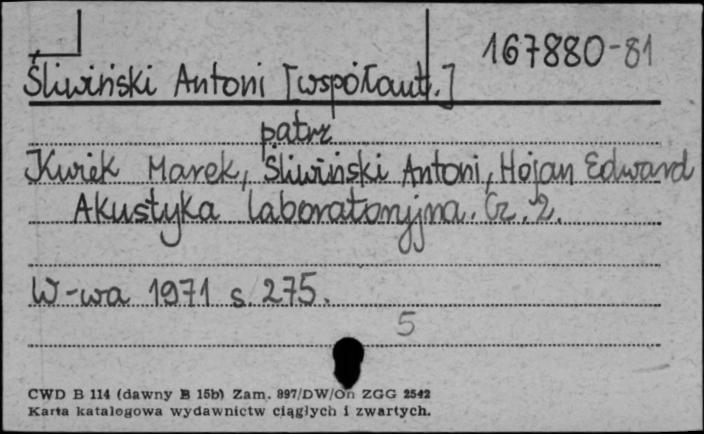 167880-81
Śliwiński Antoni [współaut.]
patrz
Kwiek Marek, Śliwiński Antoni, Hojan Edward
Akustyka laboratoryjna. Cz. 2.
W-wa 1971 s. 275.
5
CWD B 114 (dawny B 15b) Zam. 897/DW/On ZGG 2542
Karta katalogowa wydawnictw ciągłych i zwartych.